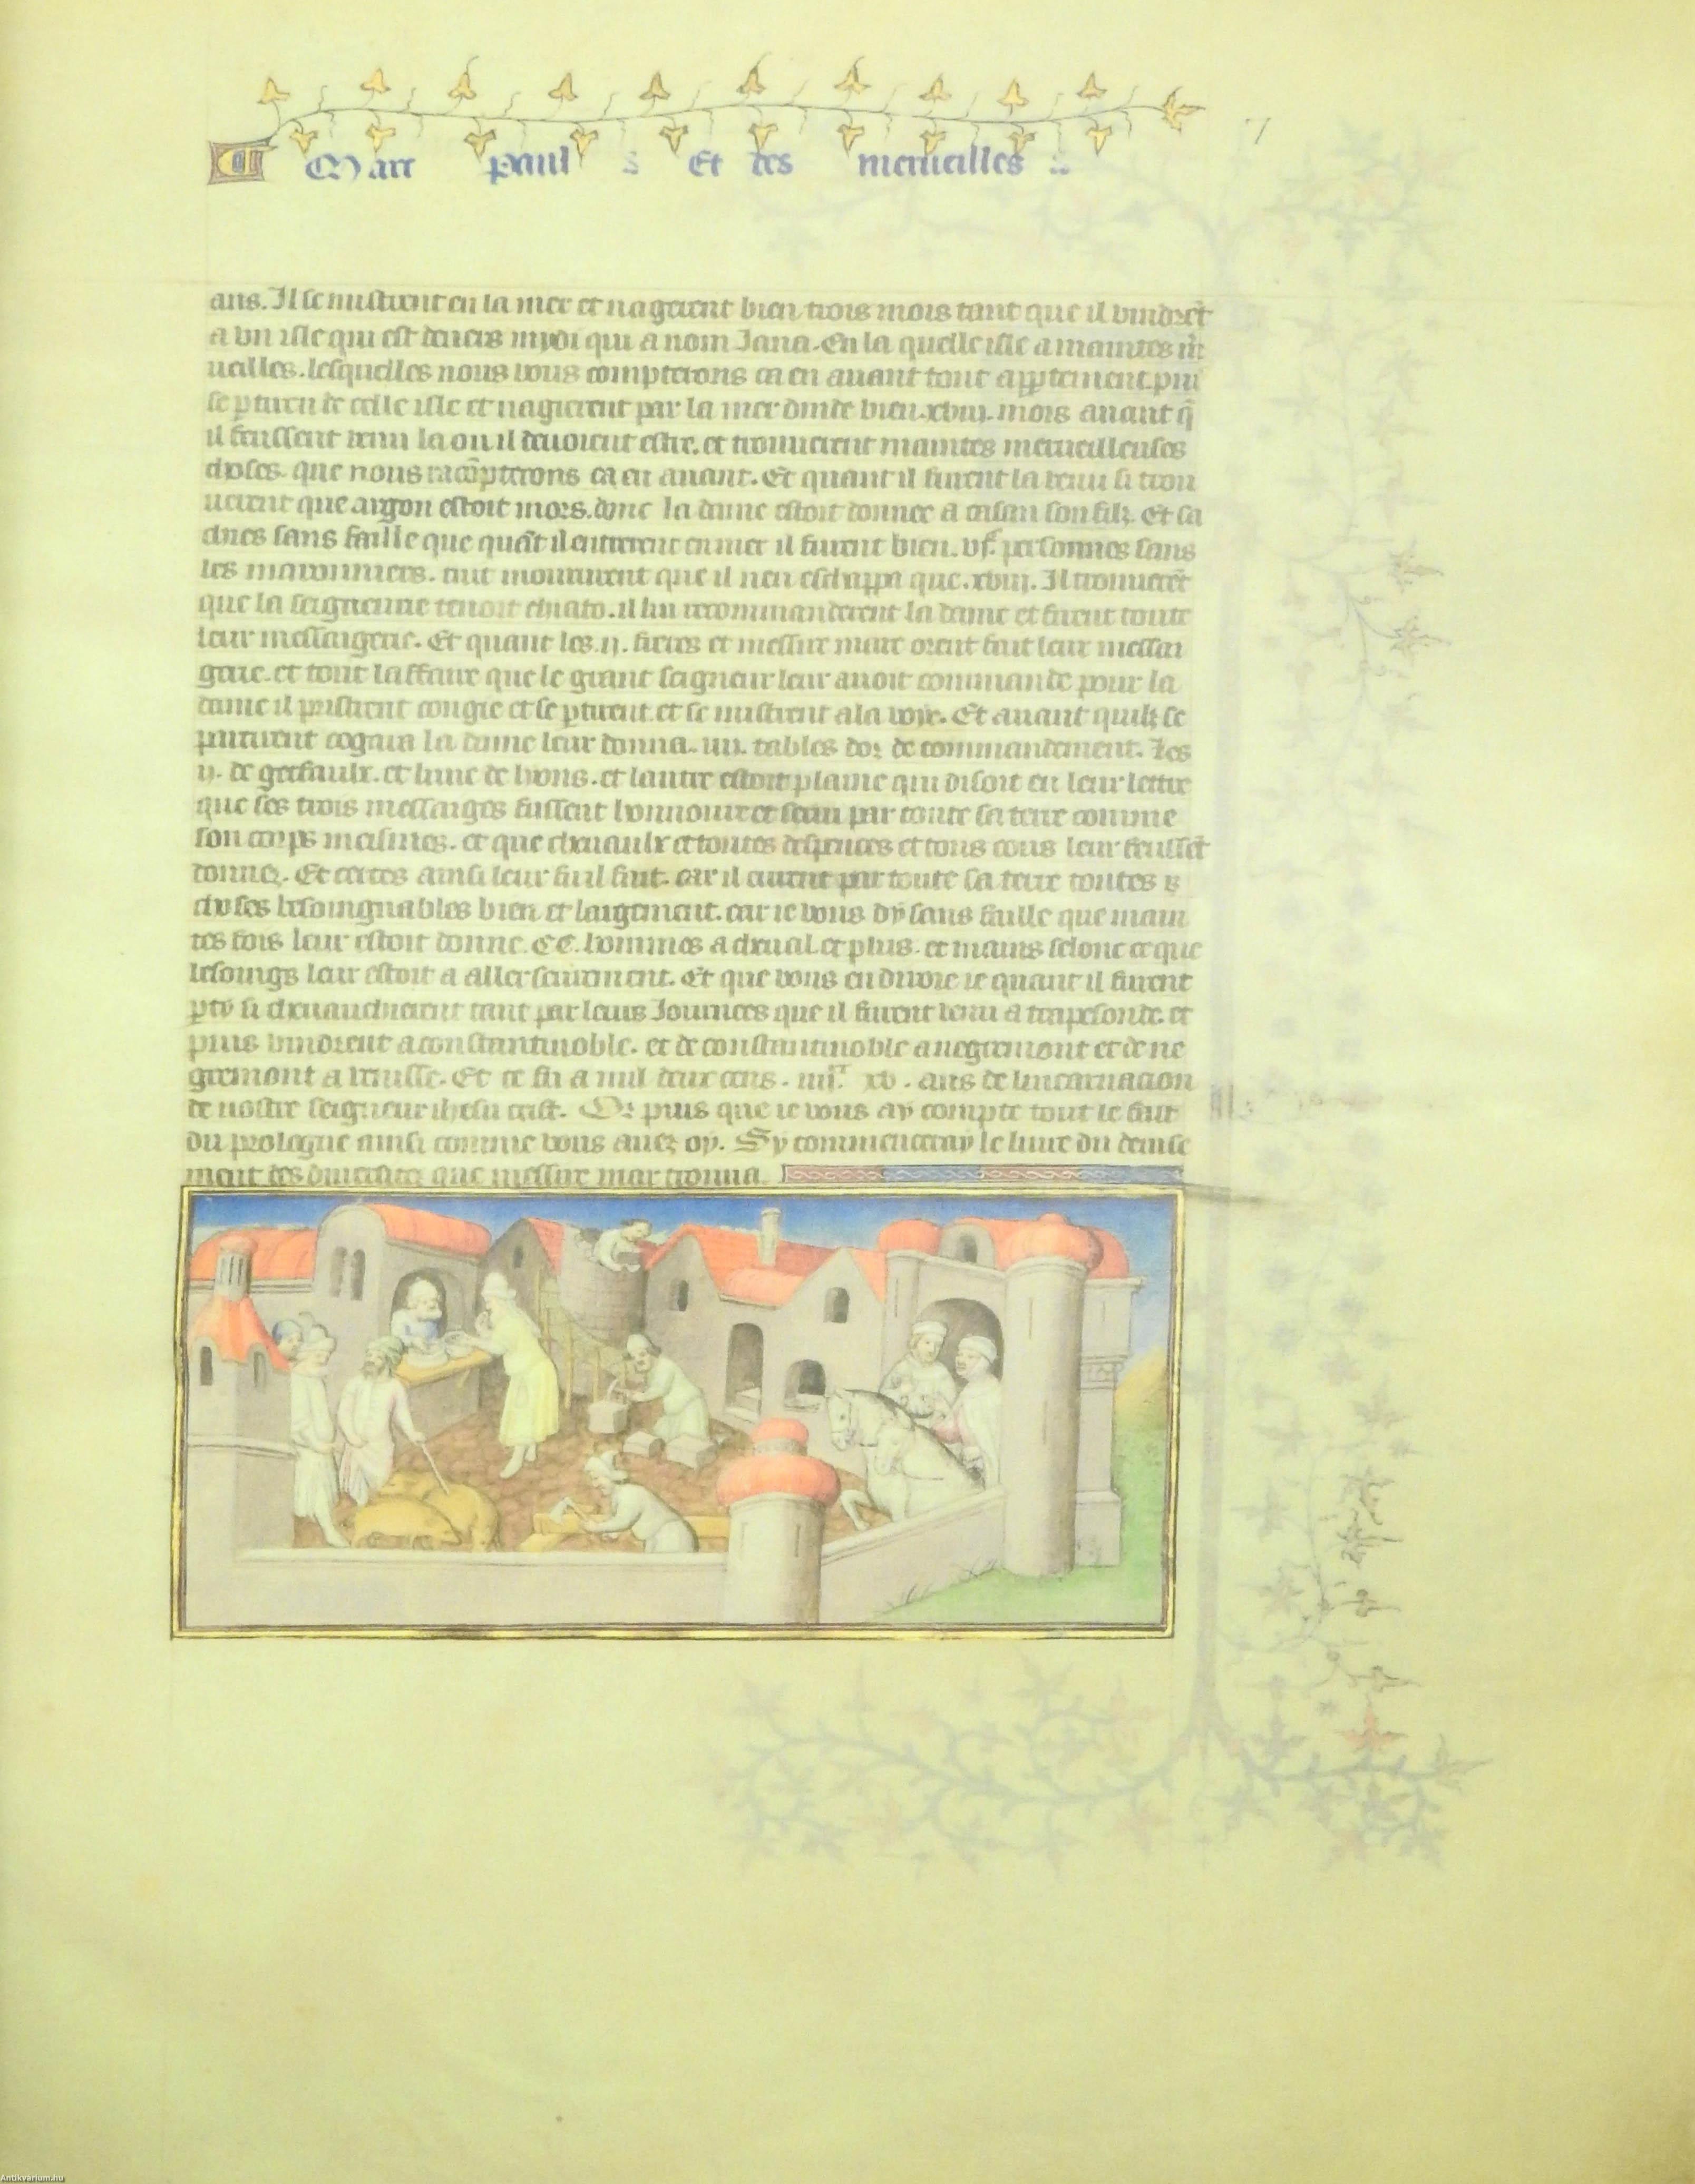 7
Marc Paul s Et des merueilles
ans. Il se mistrent en la mer et nagerent bien trois mois tant que il vindrẽt
a vn isle qui est deuers mydi qui a nom Iaua. En la quelle isle a maintes m̃
ueilles. lesquelles nous vous compterons ca en auant tout appertement. puis
se ptirent de celle isle et nagierent par la mer dinde bien .xviij. mois auant q̃
il feussent venu la ou il deuoient estre. et trouuerent maintes merueilleuses
choses. que nous racõpterons ca en auant. Et quant il furent la venu si trou
uerent que argon estoit mors. donc la dame estoit donnee a casan son filz. Et sa
chies sans faille que quãt il entrerent en mer il furent bien. vj^c. personnes sans
les maronniers. tuit moururent que il nen eschappa que .xviij. Il trouuerẽt
que la seigneurie tenoit chiato. il lui recommanderent la dame et firent toute
leur messaigerie. Et quant les .ij. freres et messire marc orent fait leur messai
gerie. et tout laffaire que le grant seigneur leur auoit commande pour la
dame il pristrent congie et se ptirent et se mistrent a la voie. Et auant quilz se
partirent cogatra la dame leur donna .iiij. tables dor de commandement. Les
ij. de gerfaulx. et lune de lyons. et lautre estoit plaine qui disoit en leur lettre
que ses trois messaiges fussent honnoure et serui par toute sa terre comme
son corps meismes. et que cheuaulx et toutes despences et tous cous leur feussẽt
donnez. Et certes ainsi leur fu il fait. car il eurent par toute sa terre toutes
choses besoingnables bien et largement. car ie vous dy sans faille que main
tes fois leur estoit donne CC. hommes a cheual et plus. et mains selonc ce que
besoings leur estoit a aller seurement. Et que vous en diroie ie quant il furent
pti si cheuauchierent tant par leurs Iournees que il furent venu a trapesonde. et
puis vindrent a constantinoble. et de constantinoble a negremont et de ne
gremont a venisse. Et ce fu a mil deux cens. iiij^xx xv. ans de lincarnacion
de nostre seigneur ihesu crist. Or puis que ie vous ay compte tout le fait
du prologue ainsi comme vous auez oy. Sy commenceray le liure du deuise
ment des diuersitez que messire marc trouua.
Antikvarium.hu